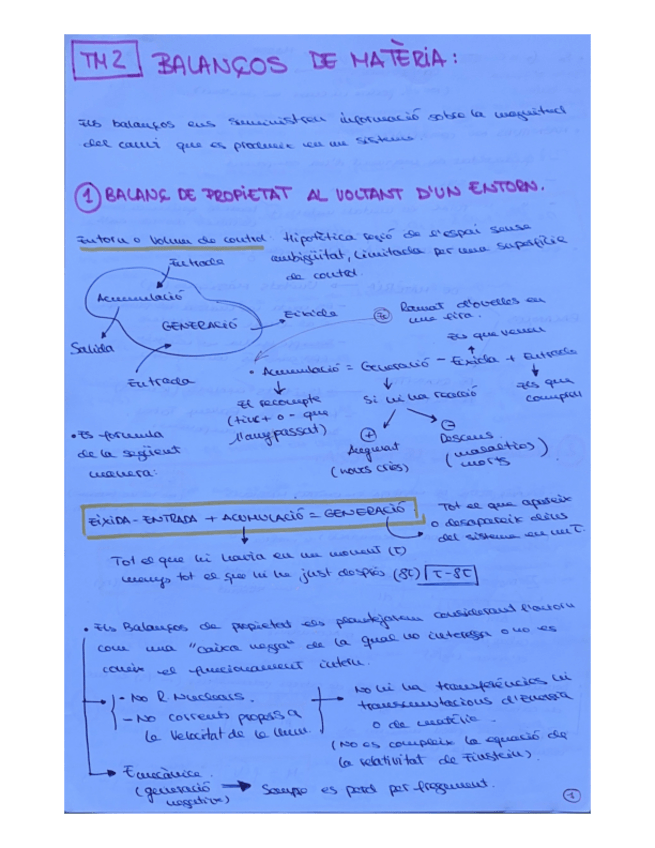 TM2 BALANÇOS DE MATÈRIA:
Els balanços ens suministren informació sobre la magnitud
del canvi que es produeix en un sistema.
1 BALANÇ DE PROPIETAT AL VOLTANT D'UN ENTORN.
Entorn o Volum de control: Hipotètica regió de l'espai sense
ambigüitat, limitada per una superfície
de control.
Entrada
Acumulació
GENERACIÓ
Eixida
Salida
Entrada
Ex Ramat d'ovelles en
una fira.
Els que venen
• Acumulació = Generació - Eixida + Entrada
El recompte
(tinc + o - que
l'any passat)
Si hi ha reacció
Els que
compren
+
Augment
(noves cries)
-
Descens
(malalties)
(morts
• Es formula
de la següent
manera:
EIXIDA - ENTRADA + ACUMULACIÓ = GENERACIÓ
Tot el que apareix
o desapareix dins
del sistema en un τ.
Tot el que hi havia en un moment (τ)
menys tot el que hi ha just després (δτ) τ-δτ
• Els Balanços de propietat els plantejarem considerant l'entorn
com una "caixa negra" de la qual no interessa o no es
coneix el funcionament intern.
- No R. Nuclears.
- No corrents propers a
la velocitat de la llum.
No hi ha transferències ni
transmutacions d'Energia
o de matèria.
(No es compleix la equació de
la relativitat de Einstein).
E mecànica.
(generació
negativa)
Sempre es perd per fregament.
1